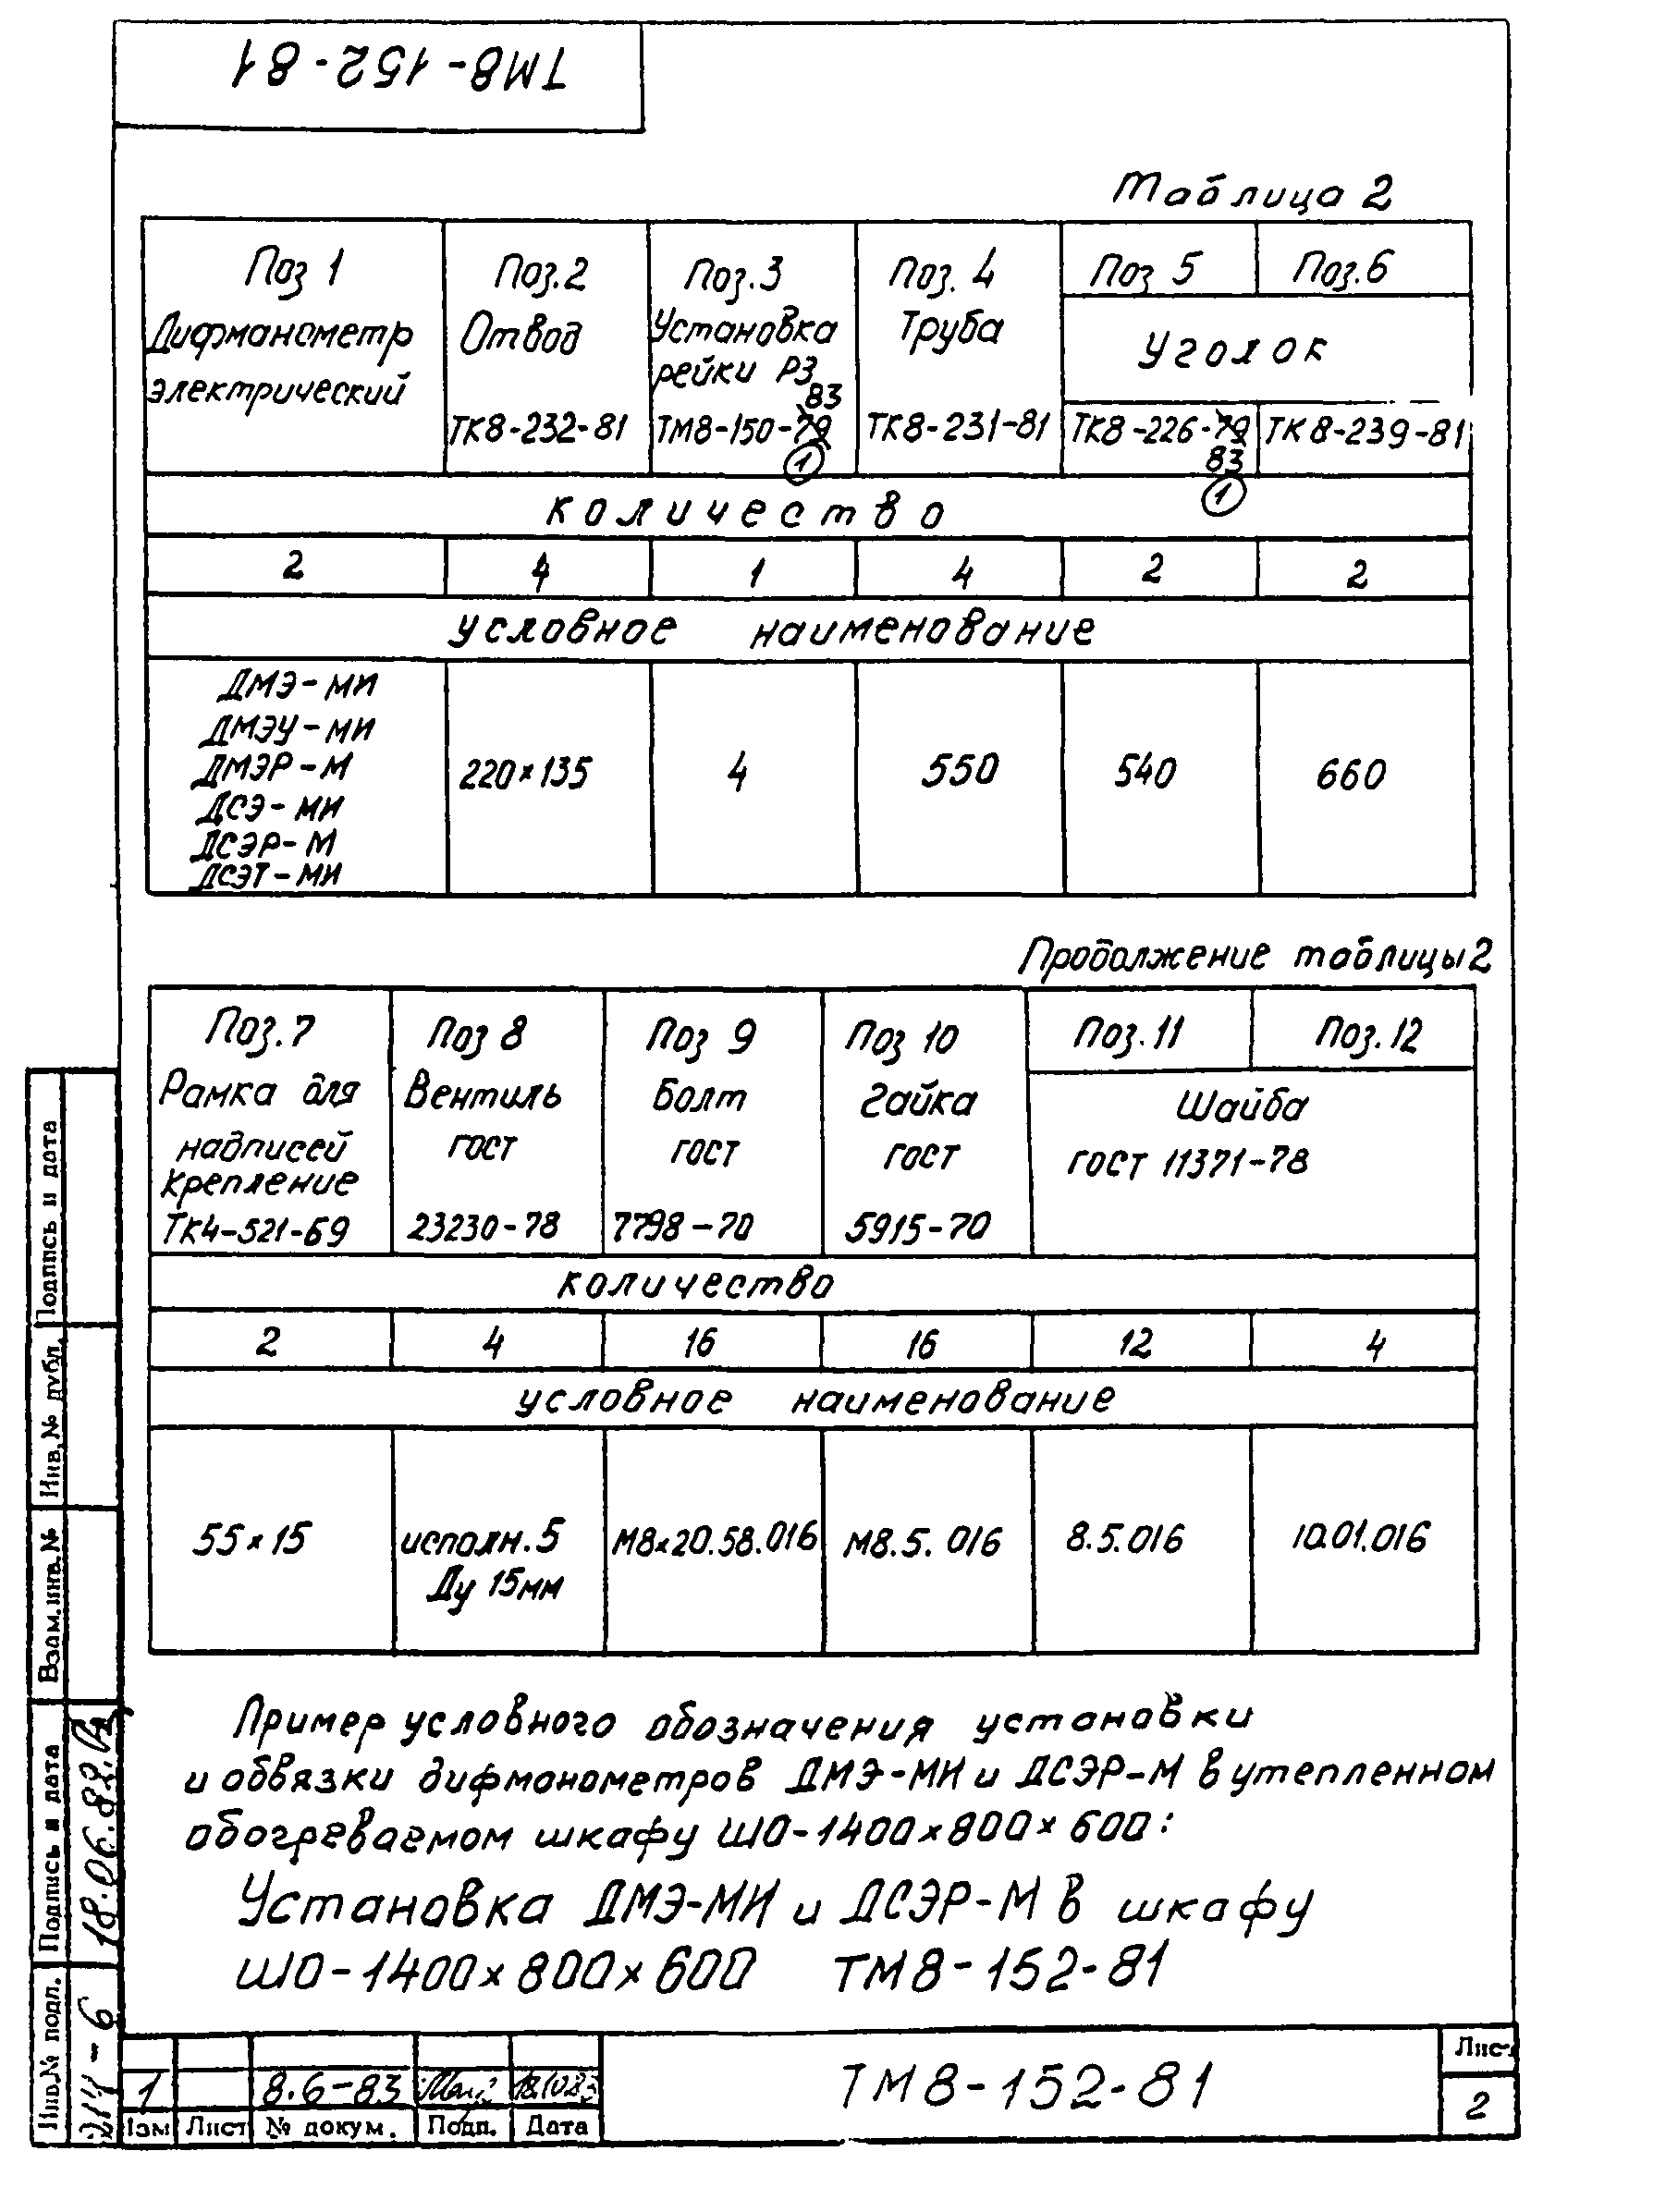 ТМ8-152-81
Таблица 2
Поз 1 Поз.2 Поз.3 Поз. 4 Поз 5 Поз.6
Дифманометр Отвод Установка Труба Уголок
электрический рейки РЗ
83
ТК8-232-81 ТМ8-150-79 ТК8-231-81 ТК8-226-79 ТК8-239-81
1 83
1
количество
2 4 1 4 2 2
условное наименование
ДМЭ-МИ
ДМЭУ-МИ
ДМЭР-М 220×135 4 550 540 660
ДСЭ-МИ
ДСЭР-М
ДСЭТ-МИ
Продолжение таблицы 2
Поз.7 Поз 8 Поз 9 Поз 10 Поз.11 Поз.12
Рамка для Вентиль Болт Гайка Шайба
надписей ГОСТ ГОСТ ГОСТ ГОСТ 11371-78
крепление
ТК4-521-69 23230-78 7798-70 5915-70
количество
2 4 16 16 12 4
условное наименование
55×15 исполн.5 М8×20.58.016 М8.5.016 8.5.016 10.01.016
Ду 15мм
Пример условного обозначения установки
и обвязки дифманометров ДМЭ-МИ и ДСЭР-М в утепленном
обогреваемом шкафу ШО-1400×800×600:
Установка ДМЭ-МИ и ДСЭР-М в шкафу
ШО-1400×800×600 ТМ8-152-81
Подпись и дата
Инв.№ дубл.
Взам.инв.№
Подпись и дата
18.06.82
Инв.№ подл.
214-6
1 8.6-83
Изм Лист № докум. Подп. Дата
ТМ8-152-81
Лист
2